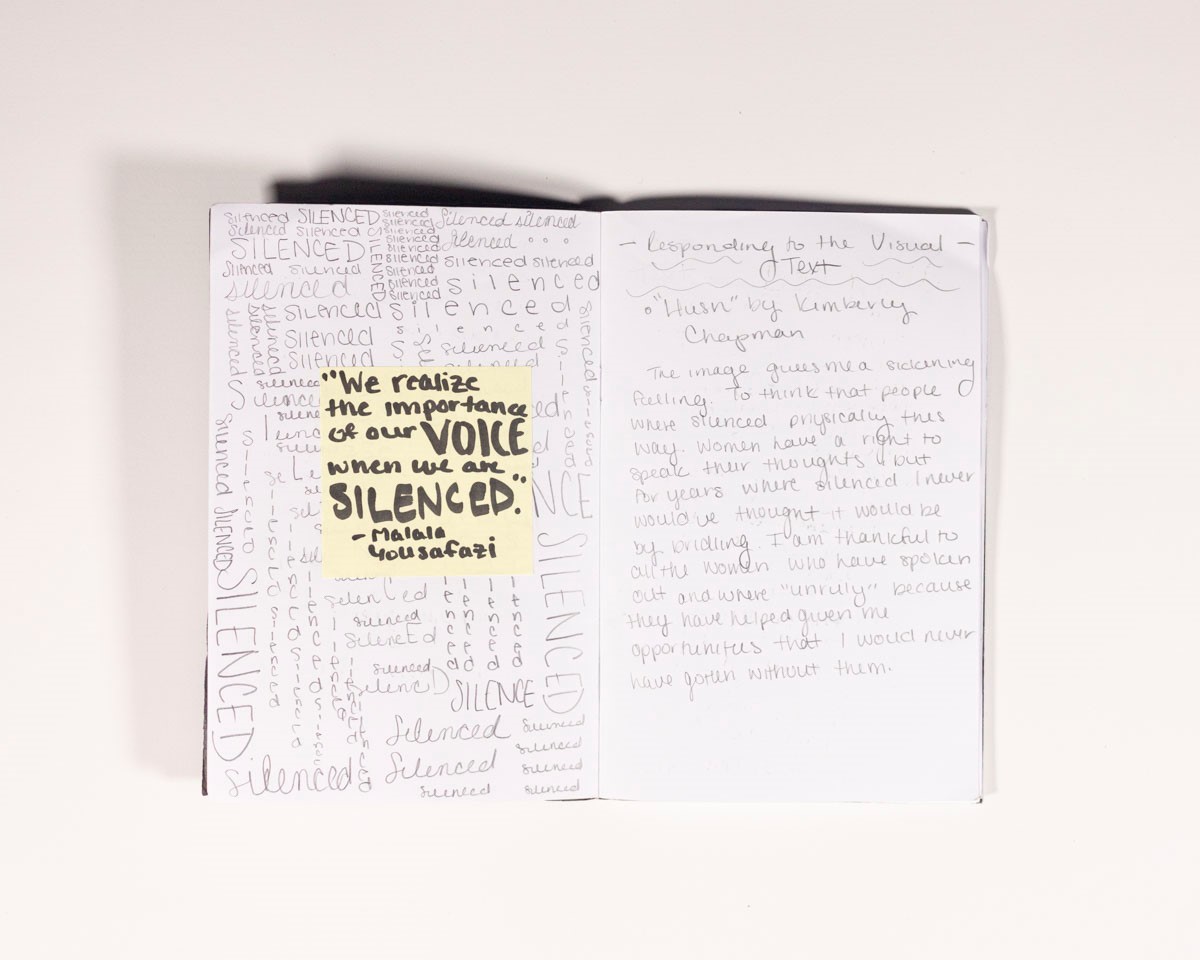 silenced SILENCED silenced Silenced silenced
Silenced silenced silenced
SILENCED silenced Silenced . . .
SILENCED
silenced silenced silenced silenced silenced
silenced silenced silenced
silenced SILENCED silenced
silenced silenced
silenced silenced
"We realize
the importance
of our VOICE
when we are
SILENCED."
- Malala
Yousafazi
silenced
silenced
silencEd
silenced
silenceD SILENCE
SILENCED
SILENCED
Silenced silenced
silenced
silenced Silenced silenced
silenced silenced
- Responding to the Visual -
Text
"Hush" by Kimberly
Chapman
The image gives me a sickening
feeling. To think that people
where silenced physically this
way. Women have a right to
speak their thoughts but
for years where silenced I never
would've thought it would be
by bridling. I am thankful to
all the women who have spoken
out and where "unruly" because
they have helped given me
opportunities that I would never
have gotten without them.